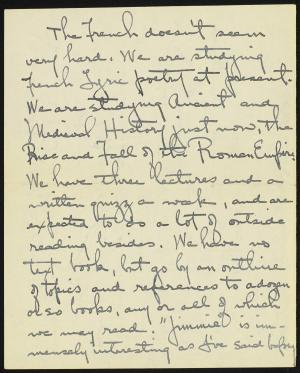 The French doesn't seem
very hard. We are studying
French Lyric poetry at present.
We are studying Ancient and
Medieval History just now, the
Rise and Fall of the Roman Empire.
We have three lectures and a
written quizz a week, and are
expected to do a lot of outside
reading besides. We have no
text book, but go by an outline
of topics and references to a dozen
or so books, any or all of which
we may read. "Jimmie" is im-
mensely interesting as I've said before